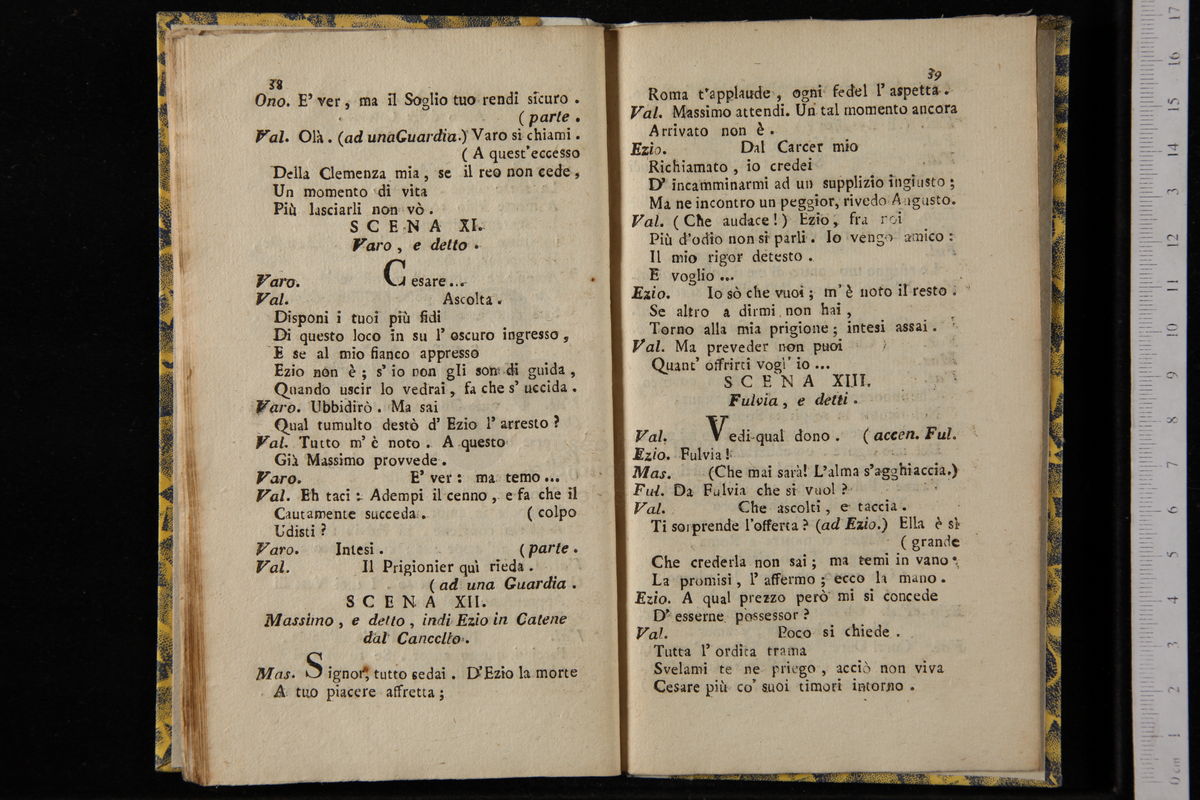 38
Ono. E' ver, ma il Soglio tuo rendi sicuro.
(parte.
Val. Olà. (ad una Guardia.) Varo si chiami.
(A quest'eccesso
Della Clemenza mia, se il reo non cede,
Un momento di vita
Più lasciarli non vò.
SCENA XI.
Varo, e detto.
Varo. Cesare...
Val. Ascolta.
Disponi i tuoi più fidi
Di questo loco in su l'oscuro ingresso,
E se al mio fianco appresso
Ezio non è; s'io non gli son di guida,
Quando uscir lo vedrai, fa che s'uccida.
Varo. Ubbidirò. Ma sai
Qual tumulto destò d'Ezio l'arresto?
Val. Tutto m'è noto. A questo
Già Massimo provvede.
Varo. E' ver: ma temo...
Val. Eh taci: Adempi il cenno, e fa che il
Cautamente succeda. (colpo
Udisti?
Varo. Intesi. (parte.
Val. Il Prigionier quì rieda.
(ad una Guardia.
SCENA XII.
Massimo, e detto, indi Ezio in Catene
dal Cancello.
Mas. Signor, tutto sedai. D'Ezio la morte
A tuo piacere affretta;
39
Roma t'applaude, ogni fedel l'aspetta.
Val. Massimo attendi. Un tal momento ancora
Arrivato non è.
Ezio. Dal Carcer mio
Richiamato, io credei
D'incamminarmi ad un supplizio ingiusto;
Ma ne incontro un peggior, rivedo Augusto.
Val. (Che audace!) Ezio, fra noi
Più d'odio non si parli. Io vengo amico:
Il mio rigor detesto.
E voglio...
Ezio. Io sò che vuoi; m'è noto il resto.
Se altro a dirmi non hai,
Torno alla mia prigione; intesi assai.
Val. Ma preveder non puoi
Quant' offrirti vogl' io...
SCENA XIII.
Fulvia, e detti.
Val. Vedi qual dono. (accen. Ful.
Ezio. Fulvia!
Mas. (Che mai sarà! L'alma s'agghiaccia.)
Ful. Da Fulvia che si vuol?
Val. Che ascolti, e taccia.
Ti sorprende l'offerta? (ad Ezio.) Ella è sì
(grande
Che crederla non sai; ma temi in vano.
La promisi, l'affermo; ecco la mano.
Ezio. A qual prezzo però mi si concede
D'esserne possessor?
Val. Poco si chiede.
Tutta l'ordita trama
Svelami te ne priego, acciò non viva
Cesare più co' suoi timori intorno.
0 cm 1 2 3 4 5 6 7 8 9 10 11 12 13 14 15 16 17